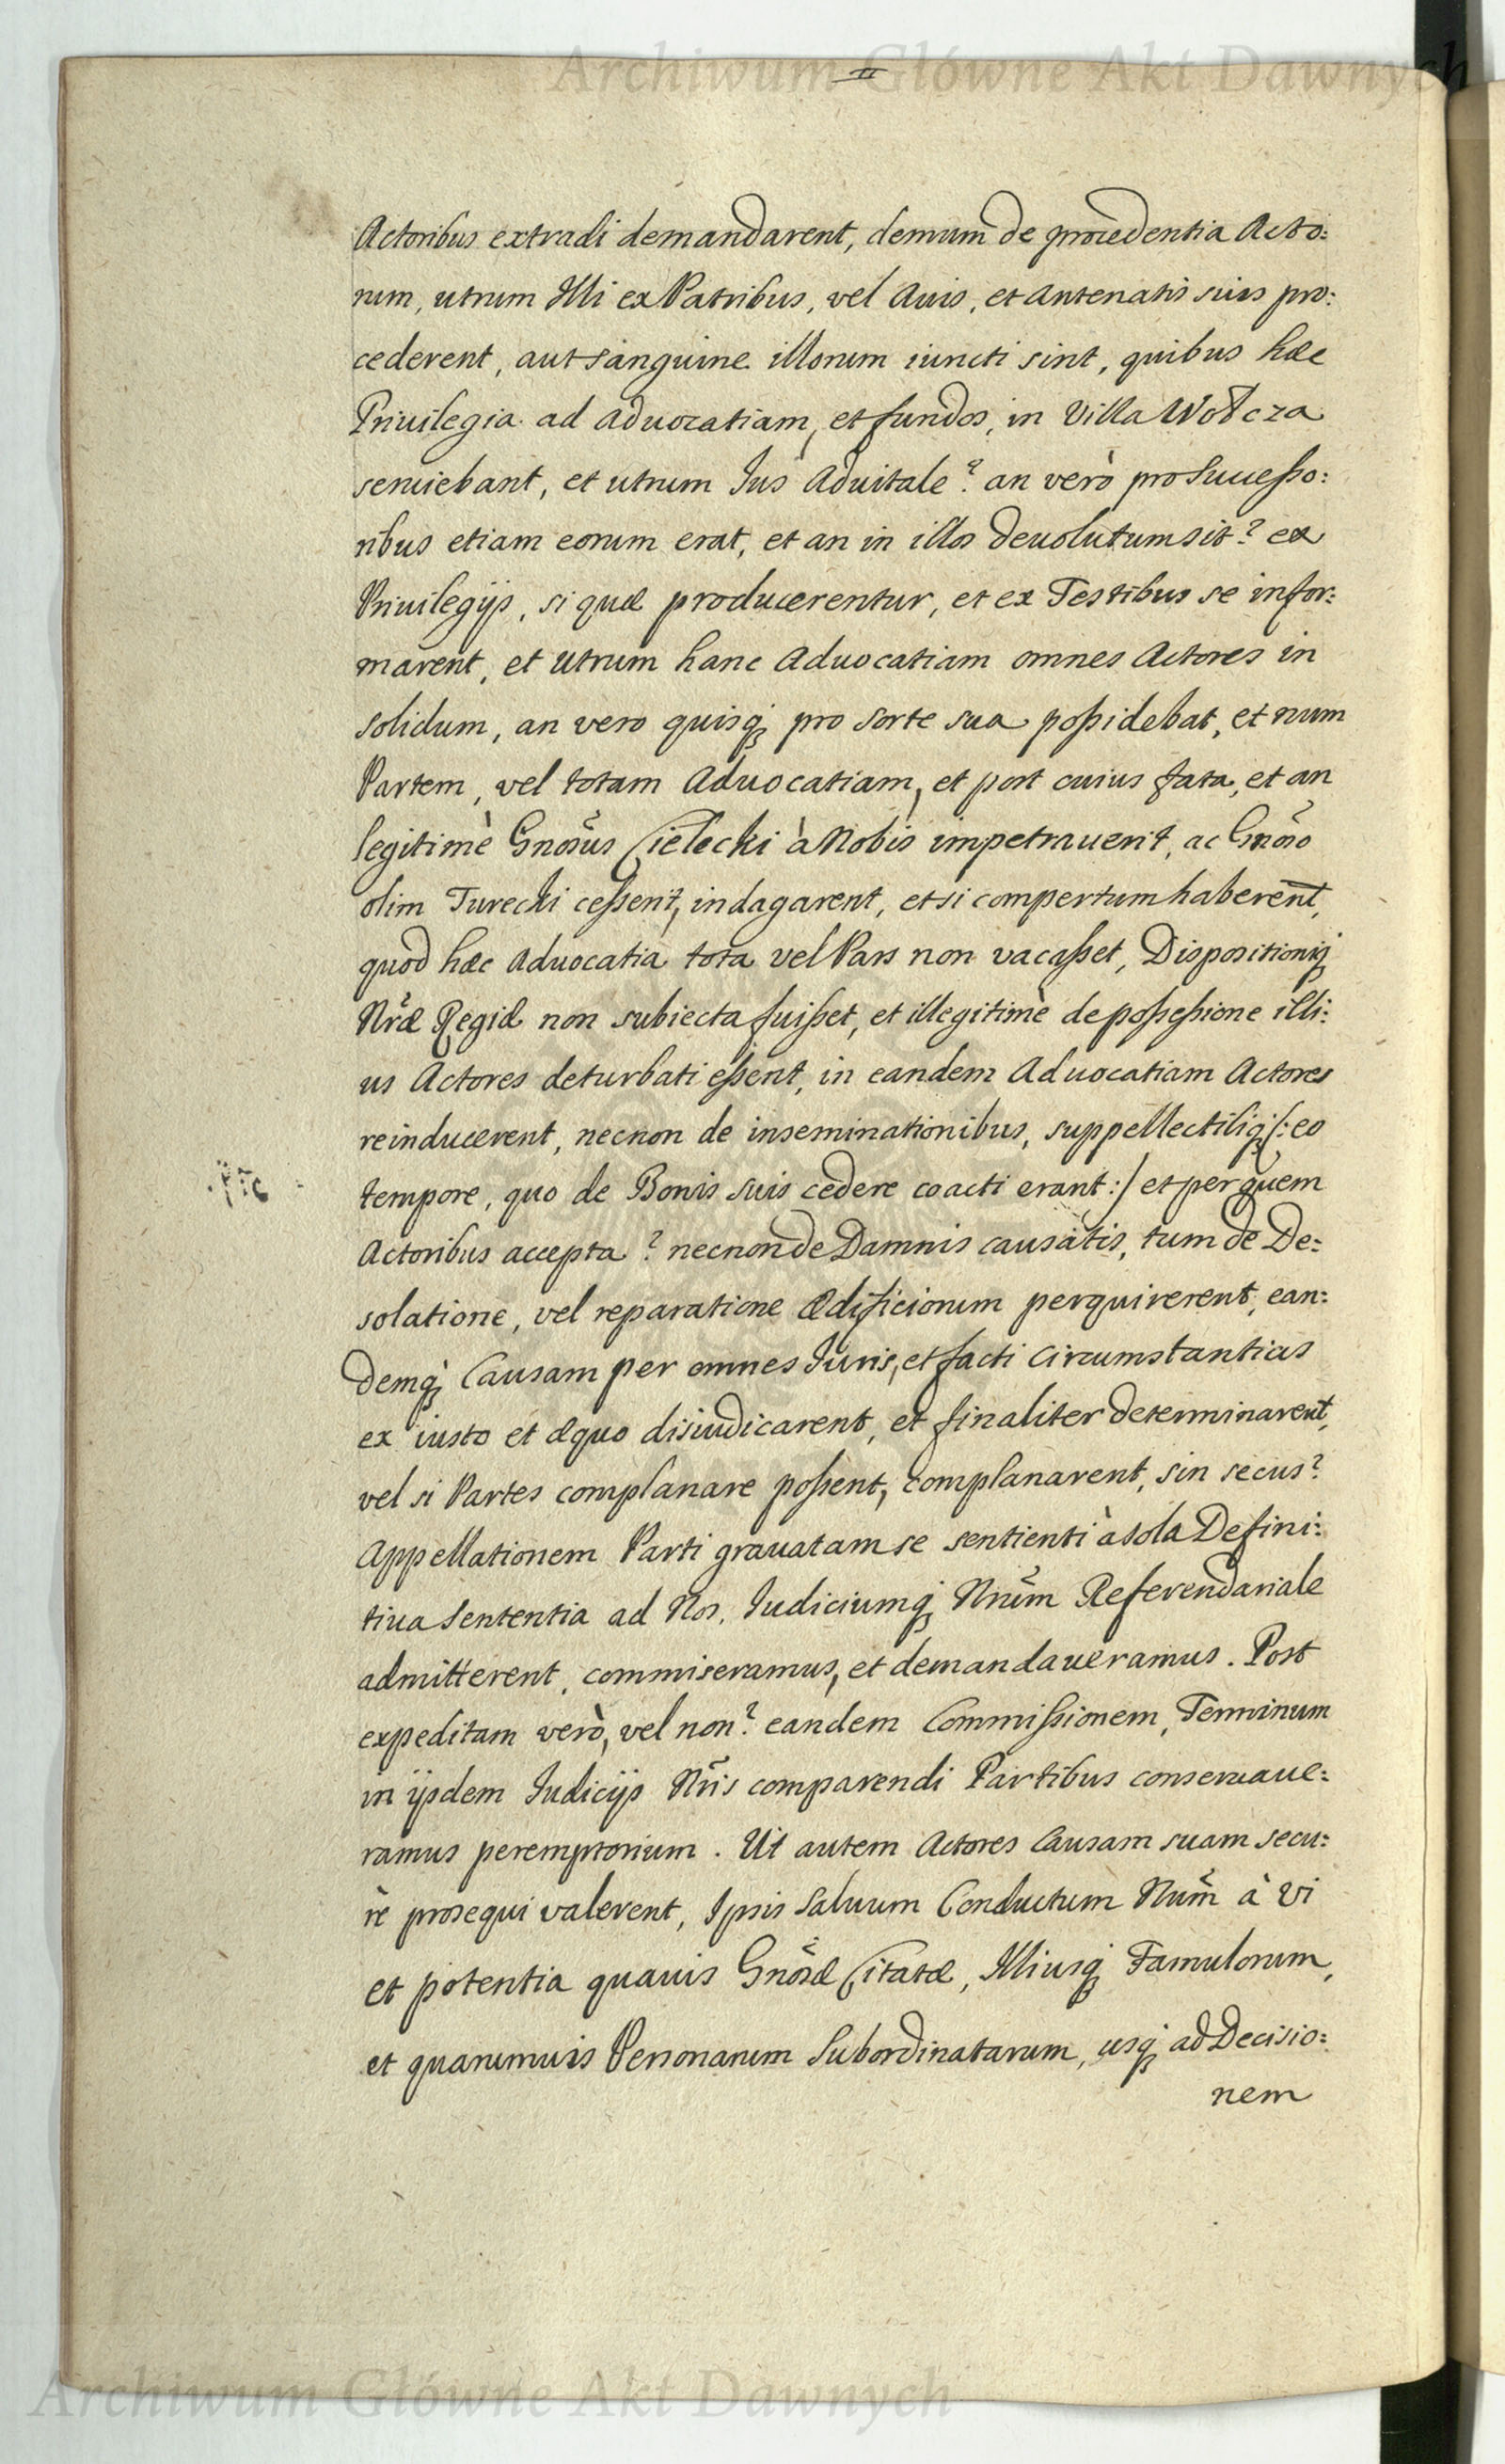 Archiwum Główne Akt Dawnych
II
Actoribus extradi demandarent, demum de procedentia Acto:
rum, utrum Illi ex Patribus, vel Avis, et Antenatis suis pro:
cederent, aut sanguine illorum iuncti sint, quibus hæc
Priuilegia ad Aduocatiam, et fundos, in Villa Wołcza
seruiebant, et utrum Ius Aduitale? an verò pro Successo:
ribus etiam eorum erat, et an in illos deuolutum sit? ex
Priuilegijs, si quæ producerentur, et ex Testibus se infor:
marent, et utrum hanc Aduocatiam omnes Actores in
solidum, an vero quisq; pro sorte sua poßidebat, et num
Partem, vel totam Aduocatiam, et post cuius fata, et an
legitimè Gnosus Cielecki à Nobis impetrauerit, ac Gnoso
olim Turecki ceßerit, indagarent, et si compertum haberent,
quod hæc Aduocatia tota vel Pars non vacaßet, Dispositioniq;
Nræ Regiæ non subiecta fuißet, et illegitimè de poßeßione illi:
us Actores deturbati eßent, in eandem Aduocatiam Actores
reinducerent, necnon de inseminationibus, suppellectiliq; /: eo
tempore, quo de Bonis suis cedere coacti erant :/ et per quem
Actoribus accepta? necnon de Damnis causatis, tum de De:
solatione, vel reparatione Ædificiorum perquirerent, ean:
demq; Causam per omnes Iuris, et facti Circumstantias
ex iusto et æquo disiudicarent, et finaliter determinarent,
vel si Partes complanare poßent, complanarent, sin secus?
Appellationem Parti grauatam se sentienti à sola Defini:
tiua Sententia ad Nos, Iudiciumq; Nrum Referendariale
admitterent, commiseramus, et demandaueramus. Post
expeditam verò, vel non? eandem Commißionem, Terminum
in ijsdem Iudicijs Nris comparendi Partibus conseruaue:
ramus peremptorium. Ut autem Actores Causam suam secu:
rè prosequi valerent, Ipsis Saluum Conductum Nrum à vi
et potentia quauis Gnosæ Citatæ, Illiusq; Famulorum,
et quarumuis Personarum Subordinatarum, usq; ad Decisio:
nem
Archiwum Główne Akt Dawnych